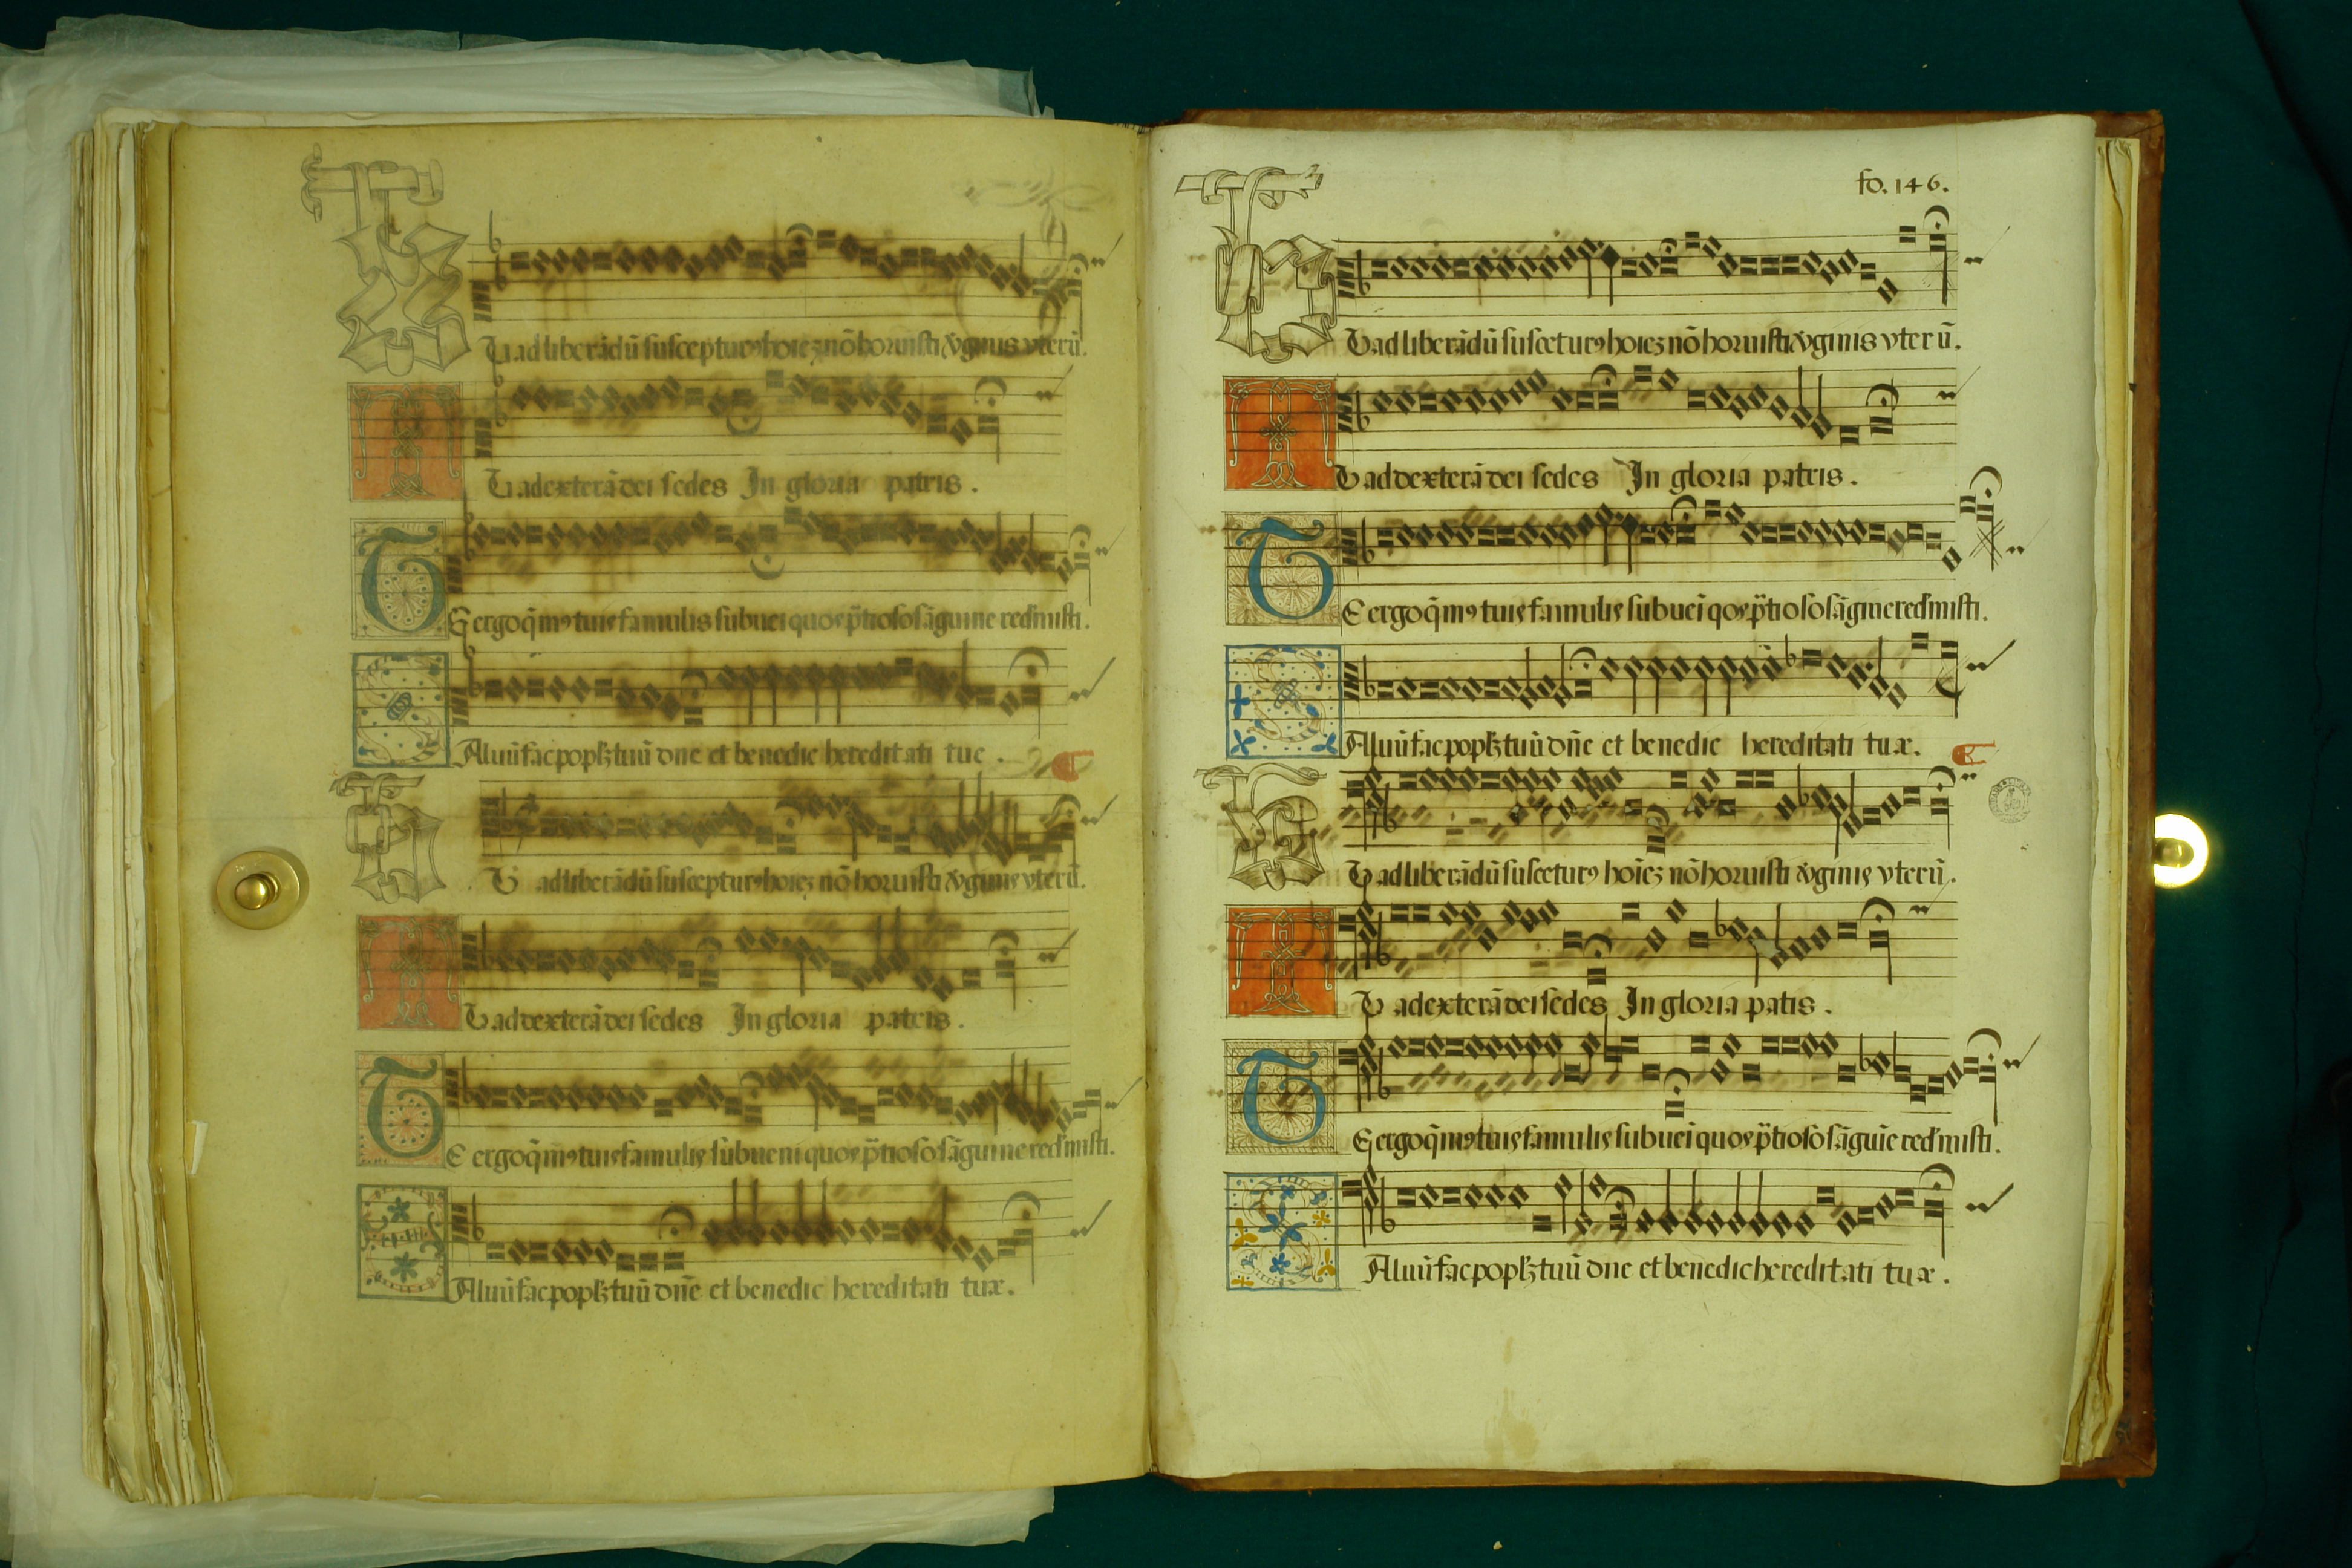 Tu ad liberādū suscepturꝰ hoīez nō horruisti v̄ginis vterū.
Tu ad exterā dei sedes In gloria patris.
TE ergo q̄mꝰ tuis famulis subuei quos p̄tioso sāguine red'misti.
SAluū fac popl'ꝫ tuū dne et benedic hereditati tue.
Tu ad liberādū suscepturꝰ hoiez nō horuisti v̄ginis vterū.
Tu ad dexterā dei sedes In gloria patris.
TE ergo q̄mꝰ tuis famulis subueni quos p̄tioso sāguine red'misti.
SAluū fac popl'ꝫ tuū dn̄e et benedic hereditati tuæ.
fo. 146.
Tu ad liberādū susceturꝰ hoiez nō horuisti v̄ginis vterū.
Tu ad dexterā dei sedes In gloria patris.
TE ergo q̄mꝰ tuis famulis subueī qos p̄tioso sāgine red'misti.
SAluū fac popl'ꝫ tuū dn̄e et benedic hereditati tuæ.
Tu ad liberādū susceturꝰ hoīez nō horuisti v̄ginis vterū.
Tu ad exterā dei sedes In gloria patis.
TE ergo q̄mꝰ tuis famulis subueī quos p̄tioso sāguīe red'misti.
SAluū fac popl'ꝫ tuū dne et benedic hereditati tuæ.